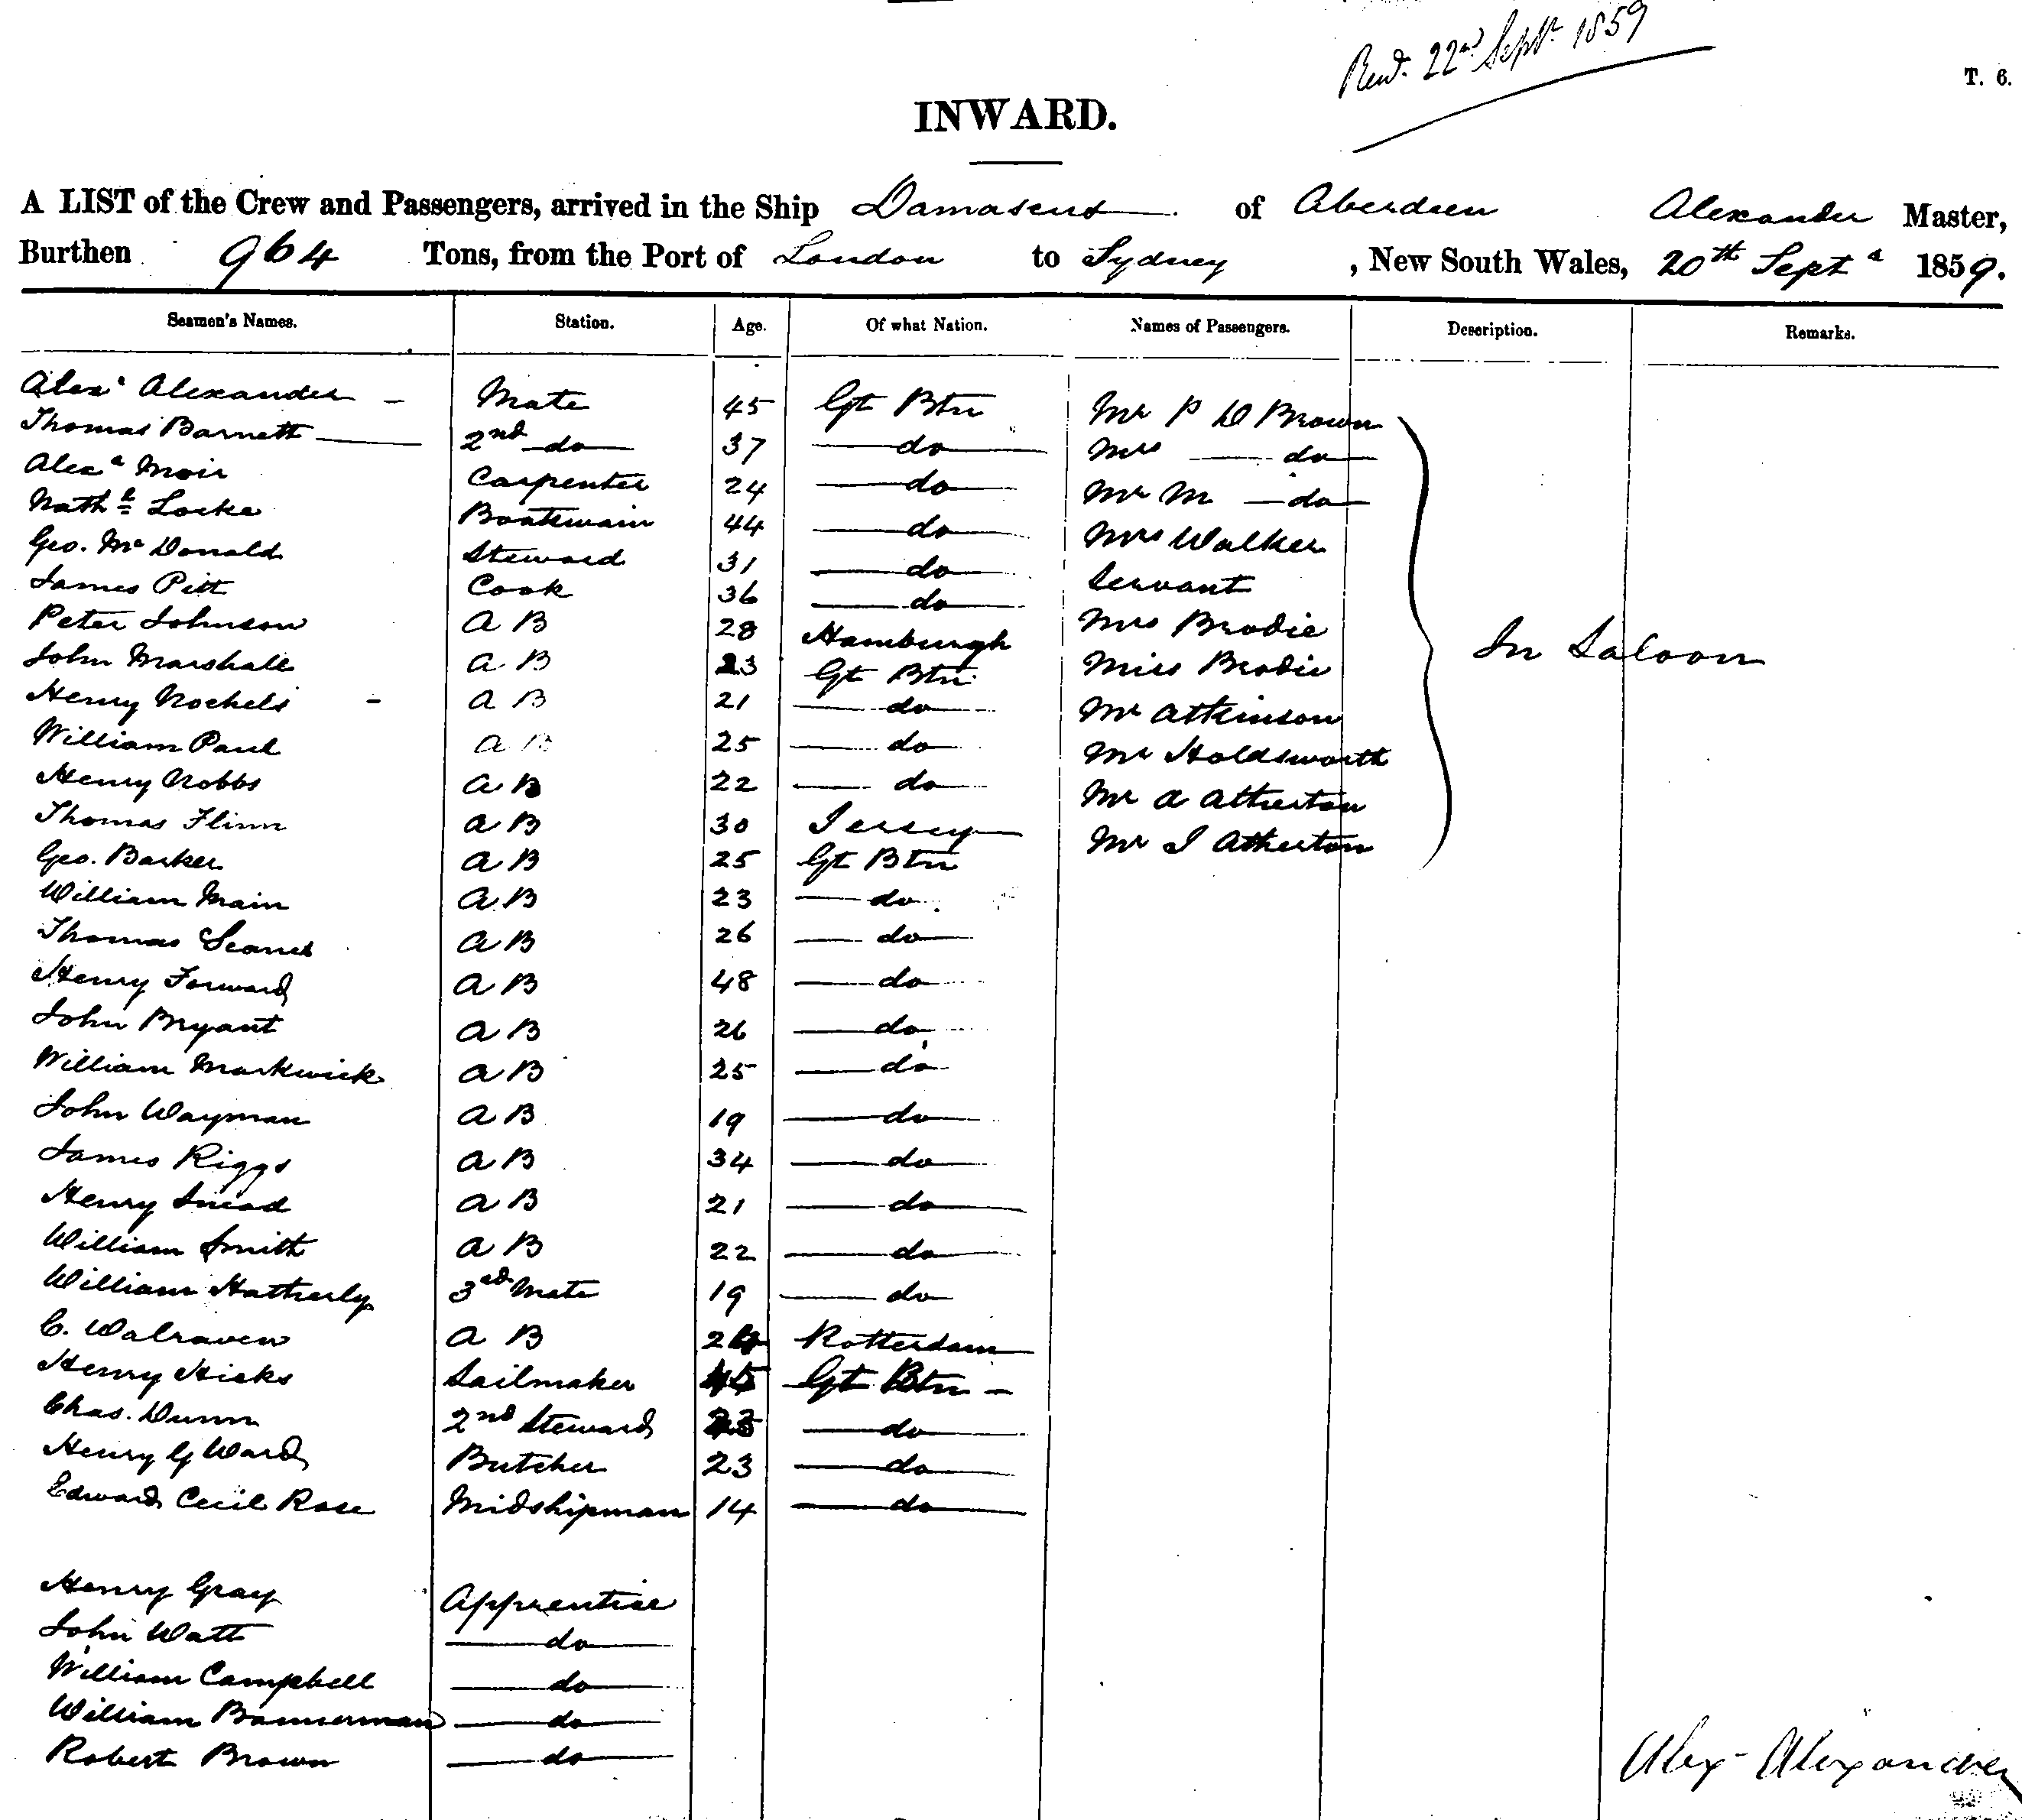 Recd. 22nd Septr. 1859
T. 6.
INWARD.
A LIST of the Crew and Passengers, arrived in the Ship Damascus of Aberdeen Alexander Master,
Burthen 964 Tons, from the Port of London to Sydney, New South Wales, 20th Septr 1859.
Seamen's Names. Station. Age. Of what Nation. Names of Passengers. Description. Remarks.
Alexr Alexander - Mate 45 Gt Btn Mr P D Brown
Thomas Barnett 2nd do 37 do Mrs do
Alexr Moir Carpenter 24 do Mr M do
Nathl Locke Boatswain 44 do Mrs Walker
Geo. McDonald Steward 31 do Servant
James Pitt Cook 36 do Mrs Brodie
Peter Johnson A B 28 Hamburgh Miss Brodie In Saloon
John Marshall A B 23 Gt Btn Mr Atkinson
Henry A B 21 do Mr Holdsworth
William Paul A B 25 do Mr A Atherton
Henry Nobbs A B 22 do Mr J Atherton
Thomas Flinn A B 30 Jersey
Geo. Barker A B 25 Gt Btn
William Main A B 23 do
Thomas A B 26 do
Henry Forward A B 48 do
John Bryant A B 26 do
William Markwick A B 25 do
John Wayman A B 19 do
James Riggs A B 34 do
Henry Snead A B 21 do
William Smith A B 22 do
William Hatherly 3rd Mate 19 do
C. Walraven A B Rotterdam
Henry Hicks Sailmaker 45 Gt Btn -
Chas. Dunn 2nd Steward do
Henry G Ward Butcher 23 do
Edward Cecil Rose Midshipman 14 do
Henry Gray Apprentice
John Watt do
William Campbell do
William Bannerman do
Robert Brown do
Alex Alexander